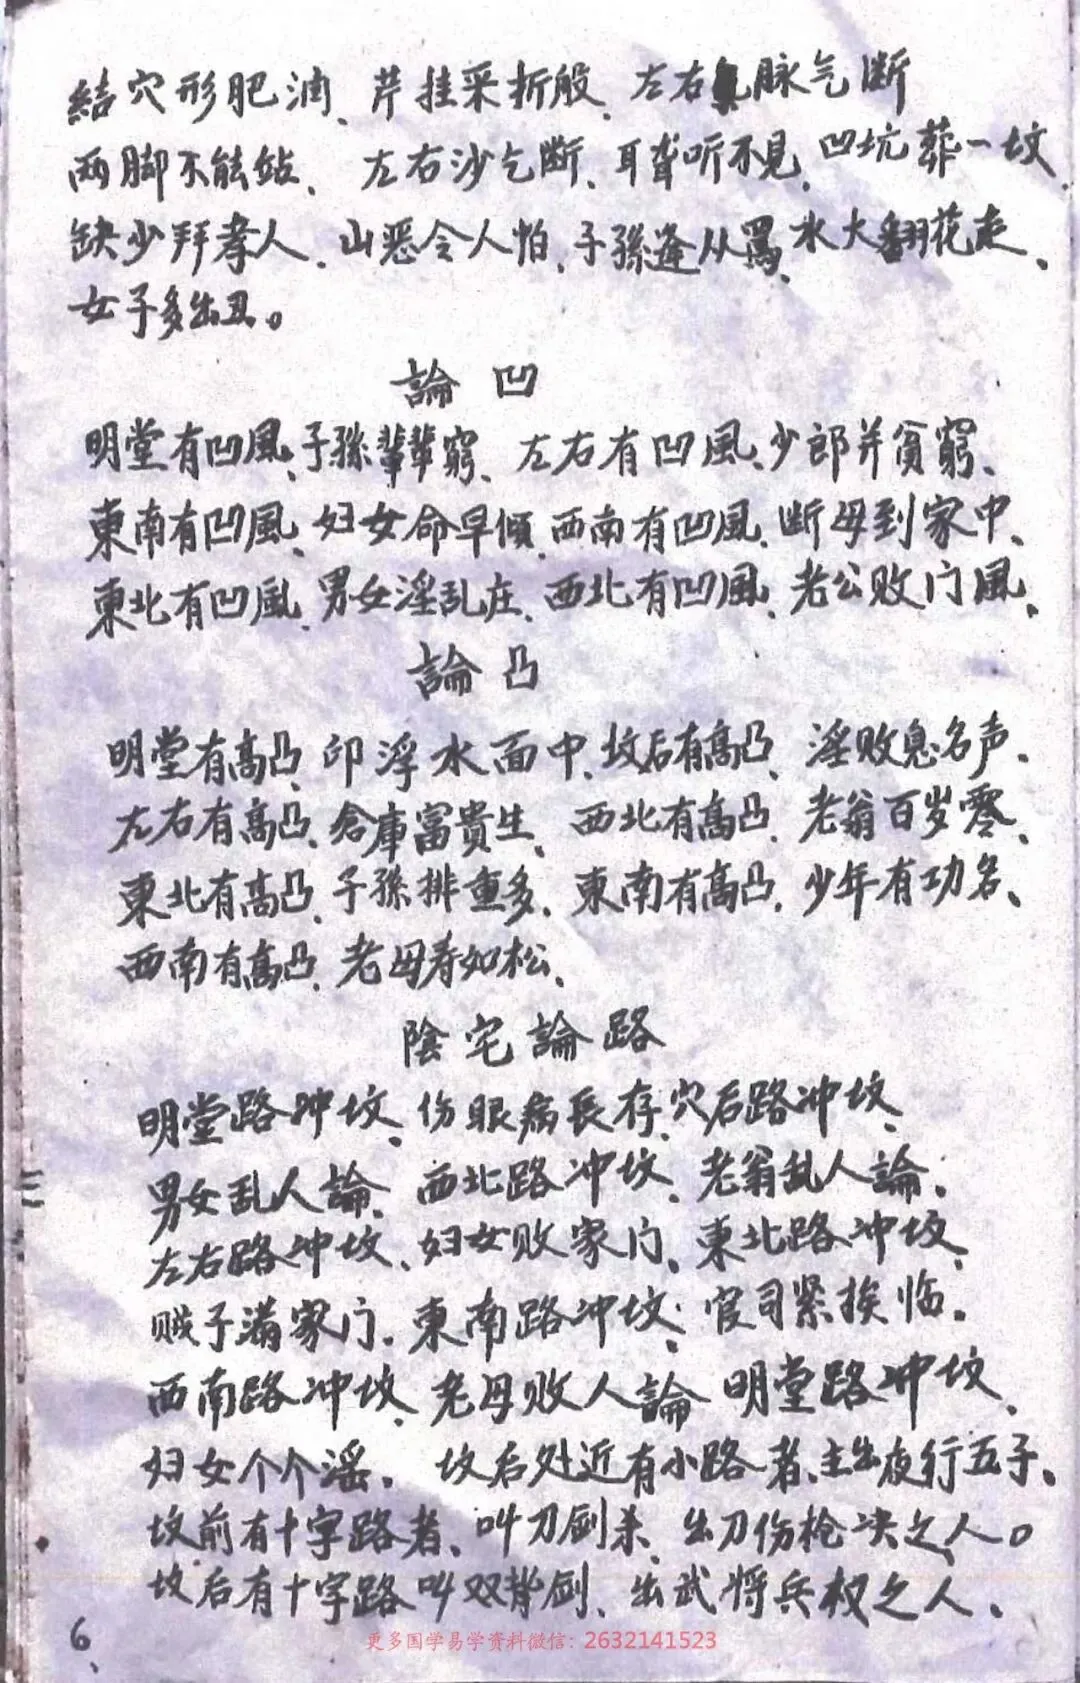 結穴形肥滿、芹挂采折般、左右脉气断
两脚不能站、左右沙气断、耳聋听不見、凹坑葬一坟、
缺少拜孝人、山恶令人怕、子孫逢从罵、水大翻花走、
女子多出丑。
論凹
明堂有凹風、子孫輩輩窮、左右有凹風、少郎并貧窮、
東南有凹風、妇女命早傾、西南有凹風、断母到家中、
東北有凹風、男女淫乱庄、西北有凹風、老公败门風、
論凸
明堂有高凸、印浮水面中、坟后有高凸、淫败息名声、
左右有高凸、倉庫富貴生、西北有高凸、老翁百岁零、
東北有高凸、子孫排重多、東南有高凸、少年有功名、
西南有高凸、老母寿如松、
陰宅論路
明堂路冲坟、伤眼病長存、穴后路冲坟、
男女乱人論、西北路冲坟、老翁乱人論。
左右路冲坟、妇女败家门、東北路冲坟、
贼子满家门。東南路冲坟；官司紧挨临。
西南路冲坟、老母败人論 明堂路冲坟、
妇女个个淫。坟后处近有小路者、主出夜行五子、
坟前有十字路者、叫刀劍杀、出刀伤枪决之人。
坟后有十字路叫双背劍、出武将兵权之人。
6、
更多国学易学资料微信：2632141523